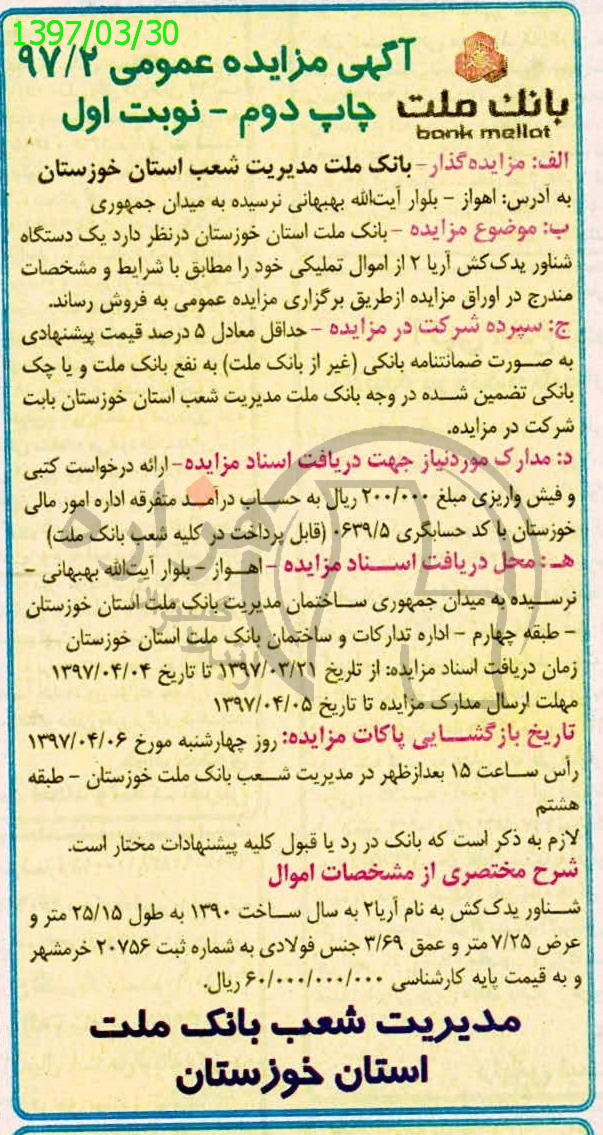 1397/03/30
آگهی مزایده عمومی ۹۷/۲
چاپ دوم - نوبت اول
بانک ملت
bank mellat
الف: مزایده‌گذار- بانک ملت مدیریت شعب استان خوزستان
به آدرس: اهواز - بلوار آیت‌الله بهبهانی نرسیده به میدان جمهوری
ب: موضوع مزایده - بانک ملت استان خوزستان درنظر دارد یک دستگاه
شناور یدک‌کش آریا ۲ از اموال تملیکی خود را مطابق با شرایط و مشخصات
مندرج در اوراق مزایده ازطریق برگزاری مزایده عمومی به فروش رساند.
ج: سپرده شرکت در مزایده - حداقل معادل ۵ درصد قیمت پیشنهادی
به صورت ضمانتنامه بانکی (غیر از بانک ملت) به نفع بانک ملت و یا چک
بانکی تضمین شده در وجه بانک ملت مدیریت شعب استان خوزستان بابت
شرکت در مزایده.
د: مدارک موردنیاز جهت دریافت اسناد مزایده- ارائه درخواست کتبی
و فیش واریزی مبلغ ۲۰۰/۰۰۰ ریال به حساب درآمد متفرقه اداره امور مالی
خوزستان با کد حسابگری ۰۶۳۹/۵ (قابل پرداخت در کلیه شعب بانک ملت)
هـ : محل دریافت اسناد مزایده - اهواز - بلوار آیت‌الله بهبهانی -
نرسیده به میدان جمهوری ساختمان مدیریت بانک ملت استان خوزستان
- طبقه چهارم - اداره تدارکات و ساختمان بانک ملت استان خوزستان
زمان دریافت اسناد مزایده: از تلریخ ۱۳۹۷/۰۳/۲۱ تا تاریخ ۱۳۹۷/۰۴/۰۴
مهلت ارسال مدارک مزایده تا تاریخ ۱۳۹۷/۰۴/۰۵
تاریخ بازگشایی پاکات مزایده: روز چهارشنبه مورخ ۱۳۹۷/۰۴/۰۶
رأس ساعت ۱۵ بعدازظهر در مدیریت شعب بانک ملت خوزستان - طبقه
هشتم
لازم به ذکر است که بانک در رد یا قبول کلیه پیشنهادات مختار است.
شرح مختصری از مشخصات اموال
شناور یدک‌کش به نام آریا۲ به سال ساخت ۱۳۹۰ به طول ۲۵/۱۵ متر و
عرض ۷/۲۵ متر و عمق ۳/۶۹ جنس فولادی به شماره ثبت ۲۰۷۵۶ خرمشهر
و به قیمت پایه کارشناسی ۶۰/۰۰۰/۰۰۰/۰۰۰ ریال.
مدیریت شعب بانک ملت
استان خوزستان